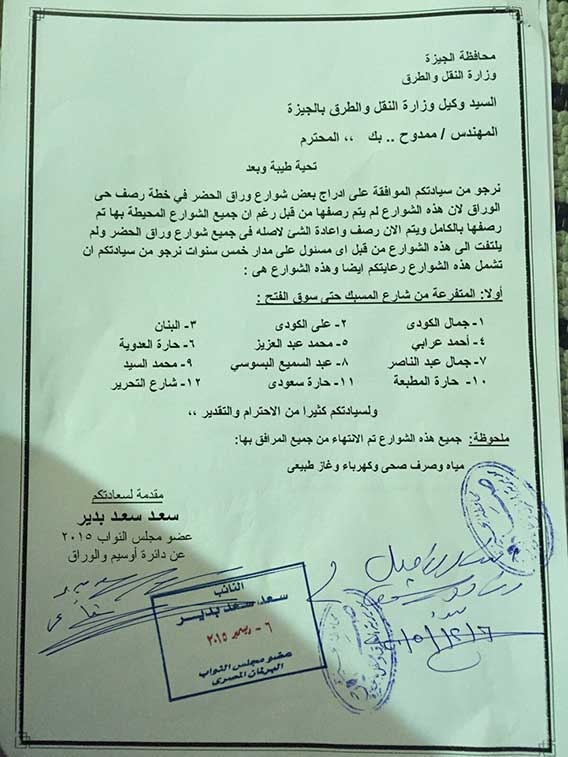 محافظة الجيزة
وزارة النقل والطرق
السيد وكيل وزارة النقل والطرق بالجيزة
المهندس / ممدوح .. بك ،، المحترم
تحية طيبة وبعد
نرجو من سيادتكم الموافقة على ادراج بعض شوارع وراق الحضر في خطة رصف حى
الوراق لان هذه الشوارع لم يتم رصفها من قبل رغم ان جميع الشوارع المحيطة بها تم
رصفها بالكامل ويتم الان رصف واعادة الشئ لاصله فى جميع شوارع وراق الحضر ولم
يلتفت الى هذه الشوارع من قبل اى مسئول على مدار خمس سنوات نرجو من سيادتكم ان
تشمل هذه الشوارع رعايتكم ايضا وهذه الشوارع هى :
أولا: المتفرعة من شارع المسبك حتى سوق الفتح :
١- جمال الكودى ٢- على الكودى ٣- البنان
٤- أحمد عرابي ٥- محمد عبد العزيز ٦- حارة العدوية
٧- جمال عبد الناصر ٨- عبد السميع البسوسي ٩- محمد السيد
١٠- حارة المطبعة ١١- حارة سعودى ١٢- شارع التحرير
ولسيادتكم كثيرا من الاحترام والتقدير ،،
ملحوظة: جميع هذه الشوارع تم الانتهاء من جميع المرافق بها:
مياه وصرف صحى وكهرباء وغاز طبيعى
مقدمة لسعادتكم
سعد سعد بدير
عضو مجلس النواب ٢٠١٥
عن دائرة أوسيم والوراق
النائب
سعد سعد بديـر
٦- ديسمبر ٢٠١٥
عضو مجلس النواب
البرلمان المصرى